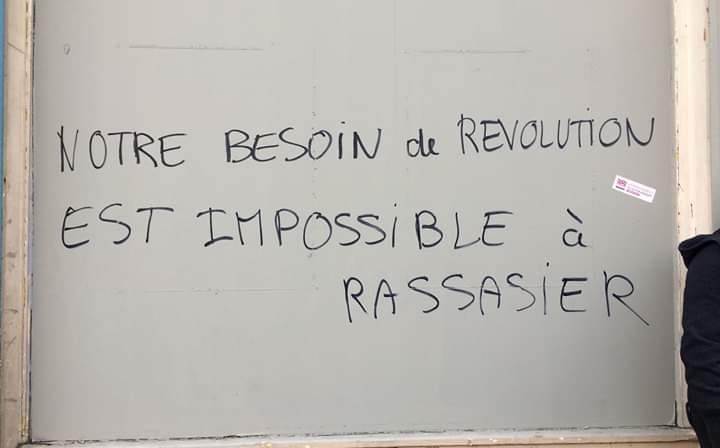 NOTRE BESOIN de REVOLUTION
EST IMPOSSIBLE à
RASSASIER